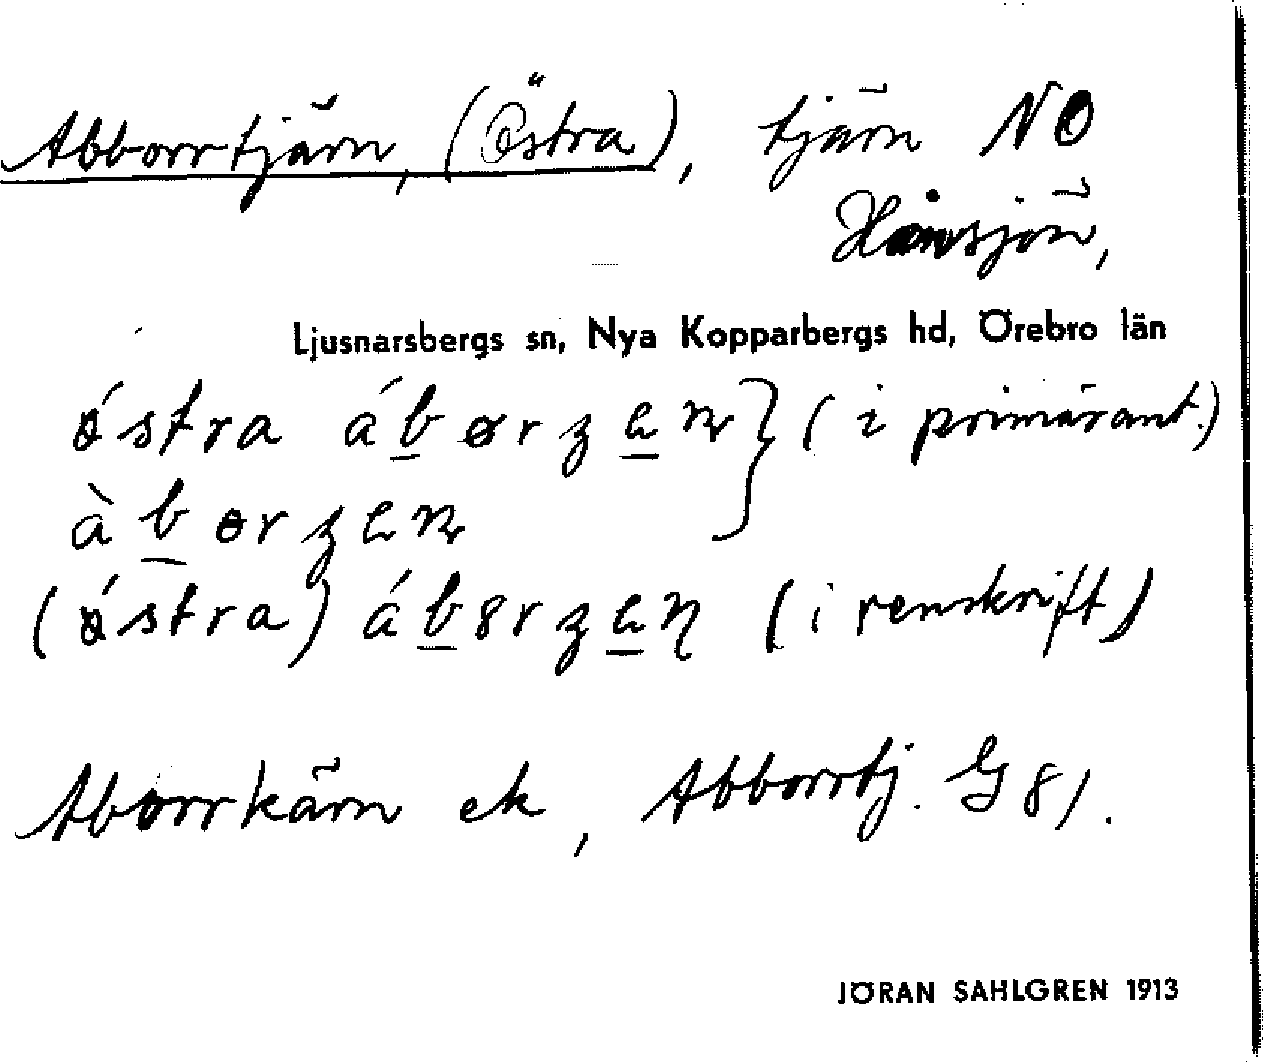 Abborrtjärn, (Östra), tjärn NO
Hånsjön,
Ljusnarsbergs sn, Nya Kopparbergs hd, Örebro län
ǿstra áb̲ørʒe̲n } (i primärant.)
àb̲ɵrʒen
(ǿstra) áb̲8rʒe̲ɳ (i renskrift)
Aborrkärn ek, Abborrtj. G 81.
JÖRAN SAHLGREN 1913